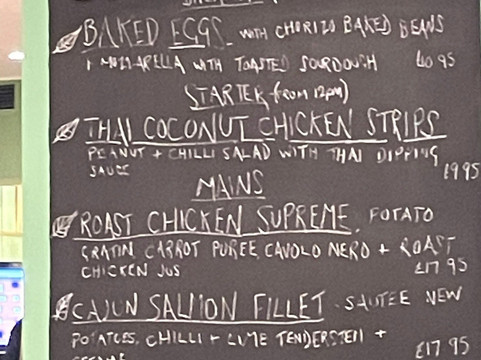 BAKED EGGS WITH CHORIZO BAKED BEANS
+ MOZZARELLA WITH TOASTED SOURDOUGH £10.95
STARTER (from 12pm)
THAI COCONUT CHICKEN STRIPS
PEANUT + CHILLI SALAD WITH THAI DIPPING
SAUCE £9.95
MAINS
ROAST CHICKEN SUPREME. POTATO
GRATIN CARROT PUREE CAVOLO NERO + ROAST
CHICKEN JUS £17.95
CAJUN SALMON FILLET. SAUTEE NEW
POTATOES, CHILLI + LIME TENDERSTEM +
£17.95